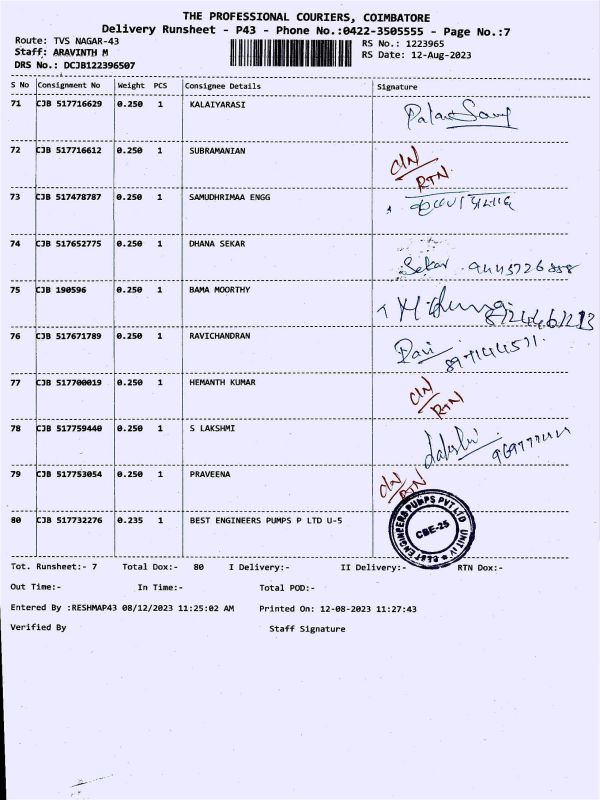 THE PROFESSIONAL COURIERS, COIMBATORE
Delivery Runsheet - P43 - Phone No.:0422-3505555 - Page No.:7
Route: TVS NAGAR-43
RS No.: 1223965
Staff: ARAVINTH M
RS Date: 12-Aug-2023
DRS No.: DCJB122396507
S No Consignment No Weight PCS Consignee Details Signature
71 CJB 517716629 0.250 1 KALAIYARASI
72 CJB 517716612 0.250 1 SUBRAMANIAN C/N RTN
73 CJB 517478787 0.250 1 SAMUDHRIMAA ENGG
74 CJB 517652775 0.250 1 DHANA SEKAR Sekar 9445726888
75 CJB 190596 0.250 1 BAMA MOORTHY
76 CJB 517671789 0.250 1 RAVICHANDRAN Ravi
77 CJB 517700019 0.250 1 HEMANTH KUMAR C/N RTN
78 CJB 517759440 0.250 1 S LAKSHMI Lakshmi
79 CJB 517753054 0.250 1 PRAVEENA C/N RTN
80 CJB 517732276 0.235 1 BEST ENGINEERS PUMPS P LTD U-5 BEST ENGINEERS PUMPS PVT LTD UNIT IV CBE-25
Tot. Runsheet:- 7 Total Dox:- 80 I Delivery:- II Delivery:- RTN Dox:-
Out Time:- In Time:- Total POD:-
Entered By :RESHMAP43 08/12/2023 11:25:02 AM Printed On: 12-08-2023 11:27:43
Verified By Staff Signature